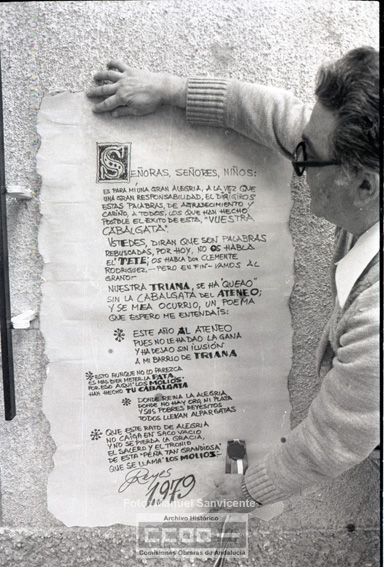 SEÑORAS, SEÑORES, NIÑOS:
ES PARA MI UNA GRAN ALEGRIA, A LA VEZ QUE
UNA GRAN RESPONSABILIDAD, EL DIRIGIROS
ESTAS PALABRAS, DE AGRADECIMIENTO Y
CARIÑO, A TODOS, LOS QUE HAN HECHO
POSIBLE EL EXITO DE ESTA, "VUESTRA
CABALGATA".
USTEDES, DIRAN QUE SON PALABRAS
REBUSCADAS, POR HOY, NO OS HABLA
EL "TETE", OS HABLA DON CLEMENTE
RODRIGUEZ,- PERO EN FIN- VAMOS AL
GRANO-
NUESTRA TRIANA, SE HA "QUEAO"
SIN LA CABALGATA DEL ATENEO;
Y SE ME A OCURRIO, UN POEMA
QUE ESPERO ME ENTENDAIS:
* ESTE AÑO AL ATENEO
PUES NO LE HA DADO LA GANA
Y HA DEJAO SIN ILUSIÓN
A MI BARRIO DE TRIANA
* ESTO AUNQUE NO LO PAREZCA
ES MAS BIEN METER LA PATA
POR ESO AQUI LOS MOLIOS
HAN HECHO TU CABALGATA
* DONDE REINA LA ALEGRIA
DONDE NO HAY ORO NI PLATA
Y SUS POBRES REYESITOS
TODOS LLEVAN ALPARGATAS
* QUE ESTE RATO DE ALEGRIA
NO CAIGA EN SACO VACIO
Y NO SE PIERDA LA GRACIA,
EL SALERO Y EL TRONIO
DE ESTA "PEÑA TAN GRANDIOSA"
QUE SE LLAMA "LOS MOLIOS"
Reyes
1979
Foto: Manuel Sanvicente
Archivo Histórico
CCOO
Comisiones Obreras de Andalucía